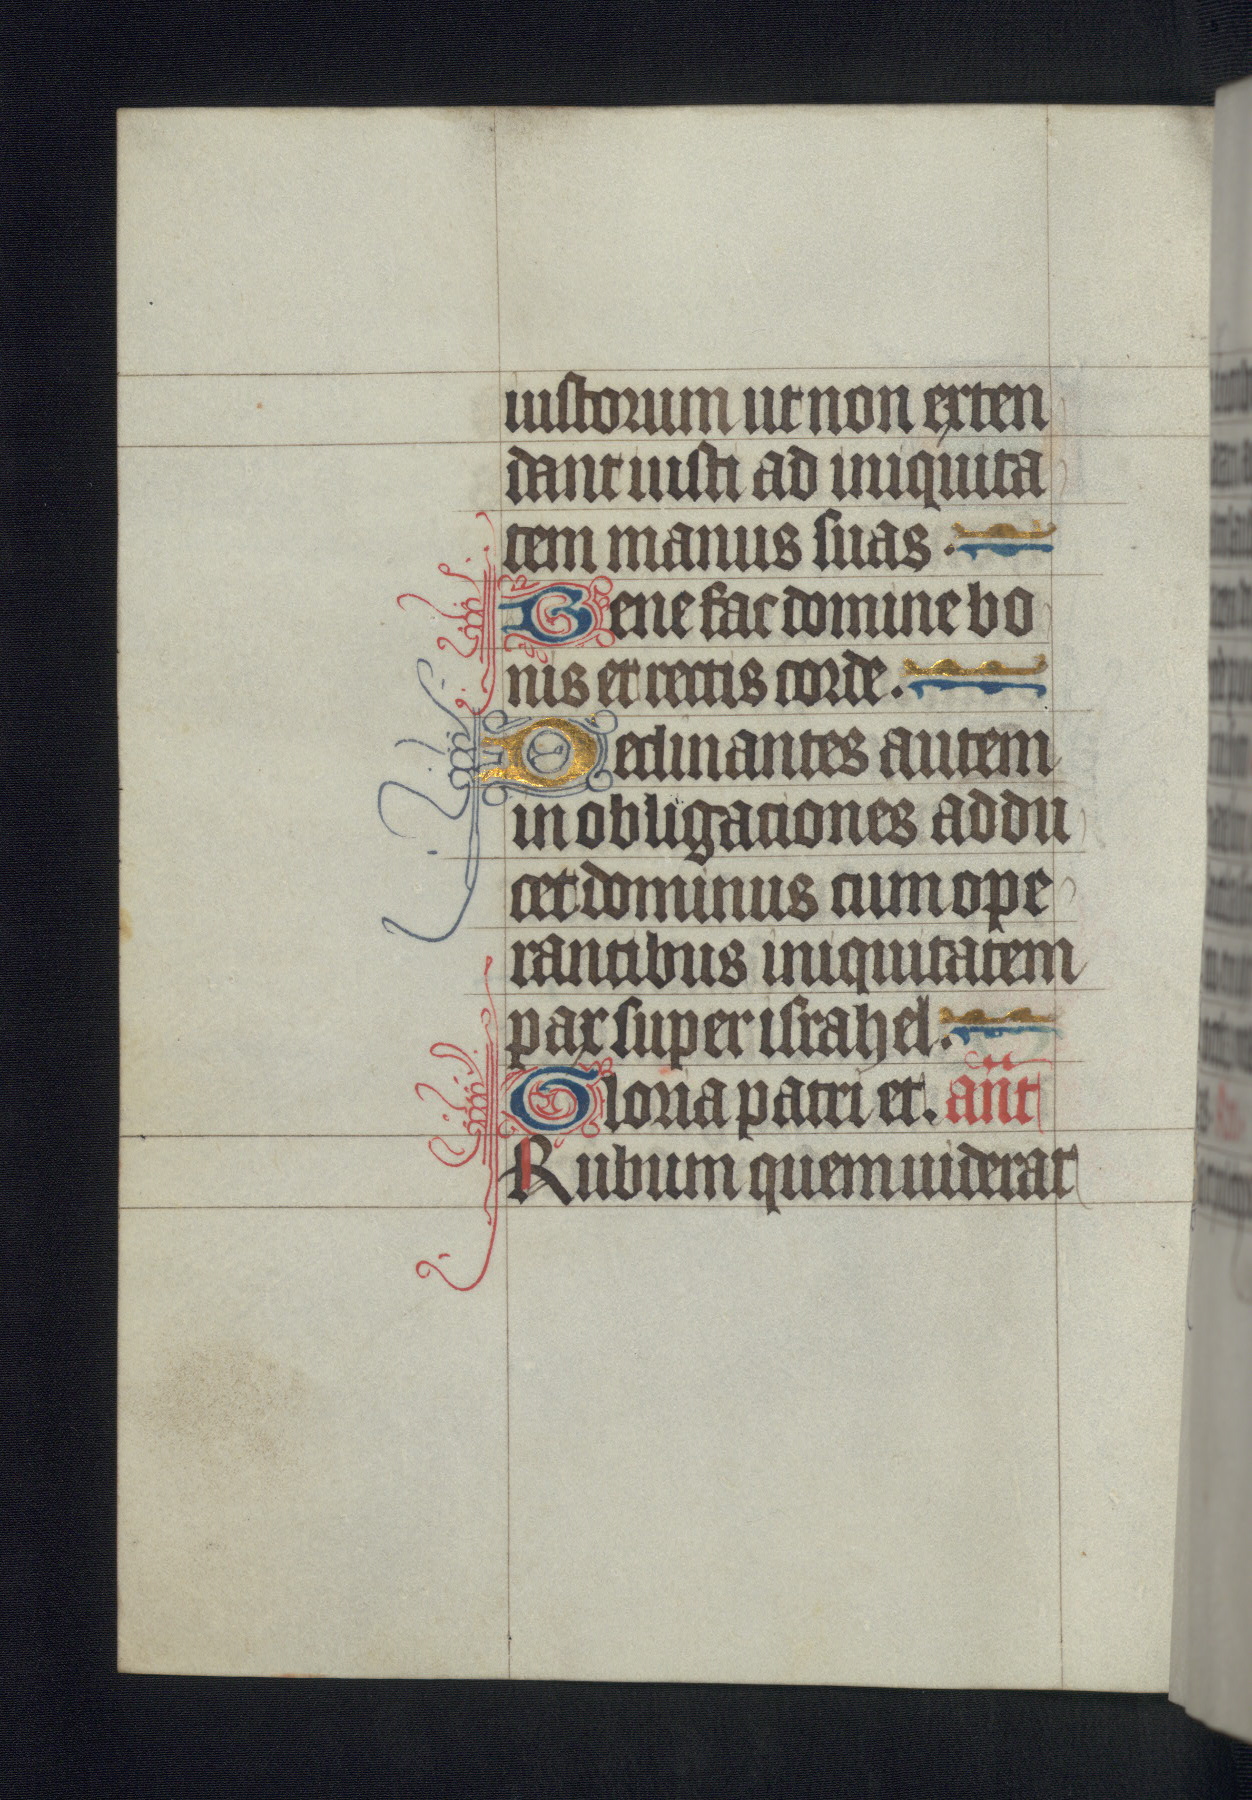 iustorum ut non exten
dant iusti ad iniquita
tem manus suas.
Bene fac domine bo
nis et rectis corde.
Declinantes autem
in obligationes addu
cet dominus cum ope
rantibus iniquitatem
pax super israhel.
Gloria patri et. añt
Rubum quem uiderat